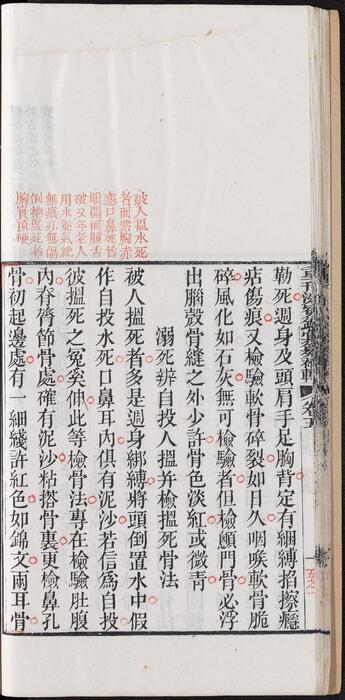 勒死週身及頭肩手足胸背定有綑縛掐擦癮
痞傷痕又檢驗軟骨碎裂如日久咽喉軟骨脆
碎風化如石灰無可檢驗者但檢顖門骨必浮
出腦殼骨縫之外少許骨色淡紅或微青
溺死辨自投人搵并檢搵死骨法
被人搵死者多是週身綁縛將頭倒置水中假
作自投水死口鼻耳內俱有泥沙若信爲自投
彼搵死之冤奚伸此等檢骨法專在檢驗肚腹
內脊膂節骨處確有泥沙粘搭骨裏更檢鼻孔
骨初起邊處有一細綫許紅色如錦文兩耳骨
被人搵水死
者面紫胸赤
塞口鼻死者
眼開面腫舌
破又年老人
用水悶氣絕
無痕亦無傷
倒捲悶死者
胸實頂硬
卷五
五之一